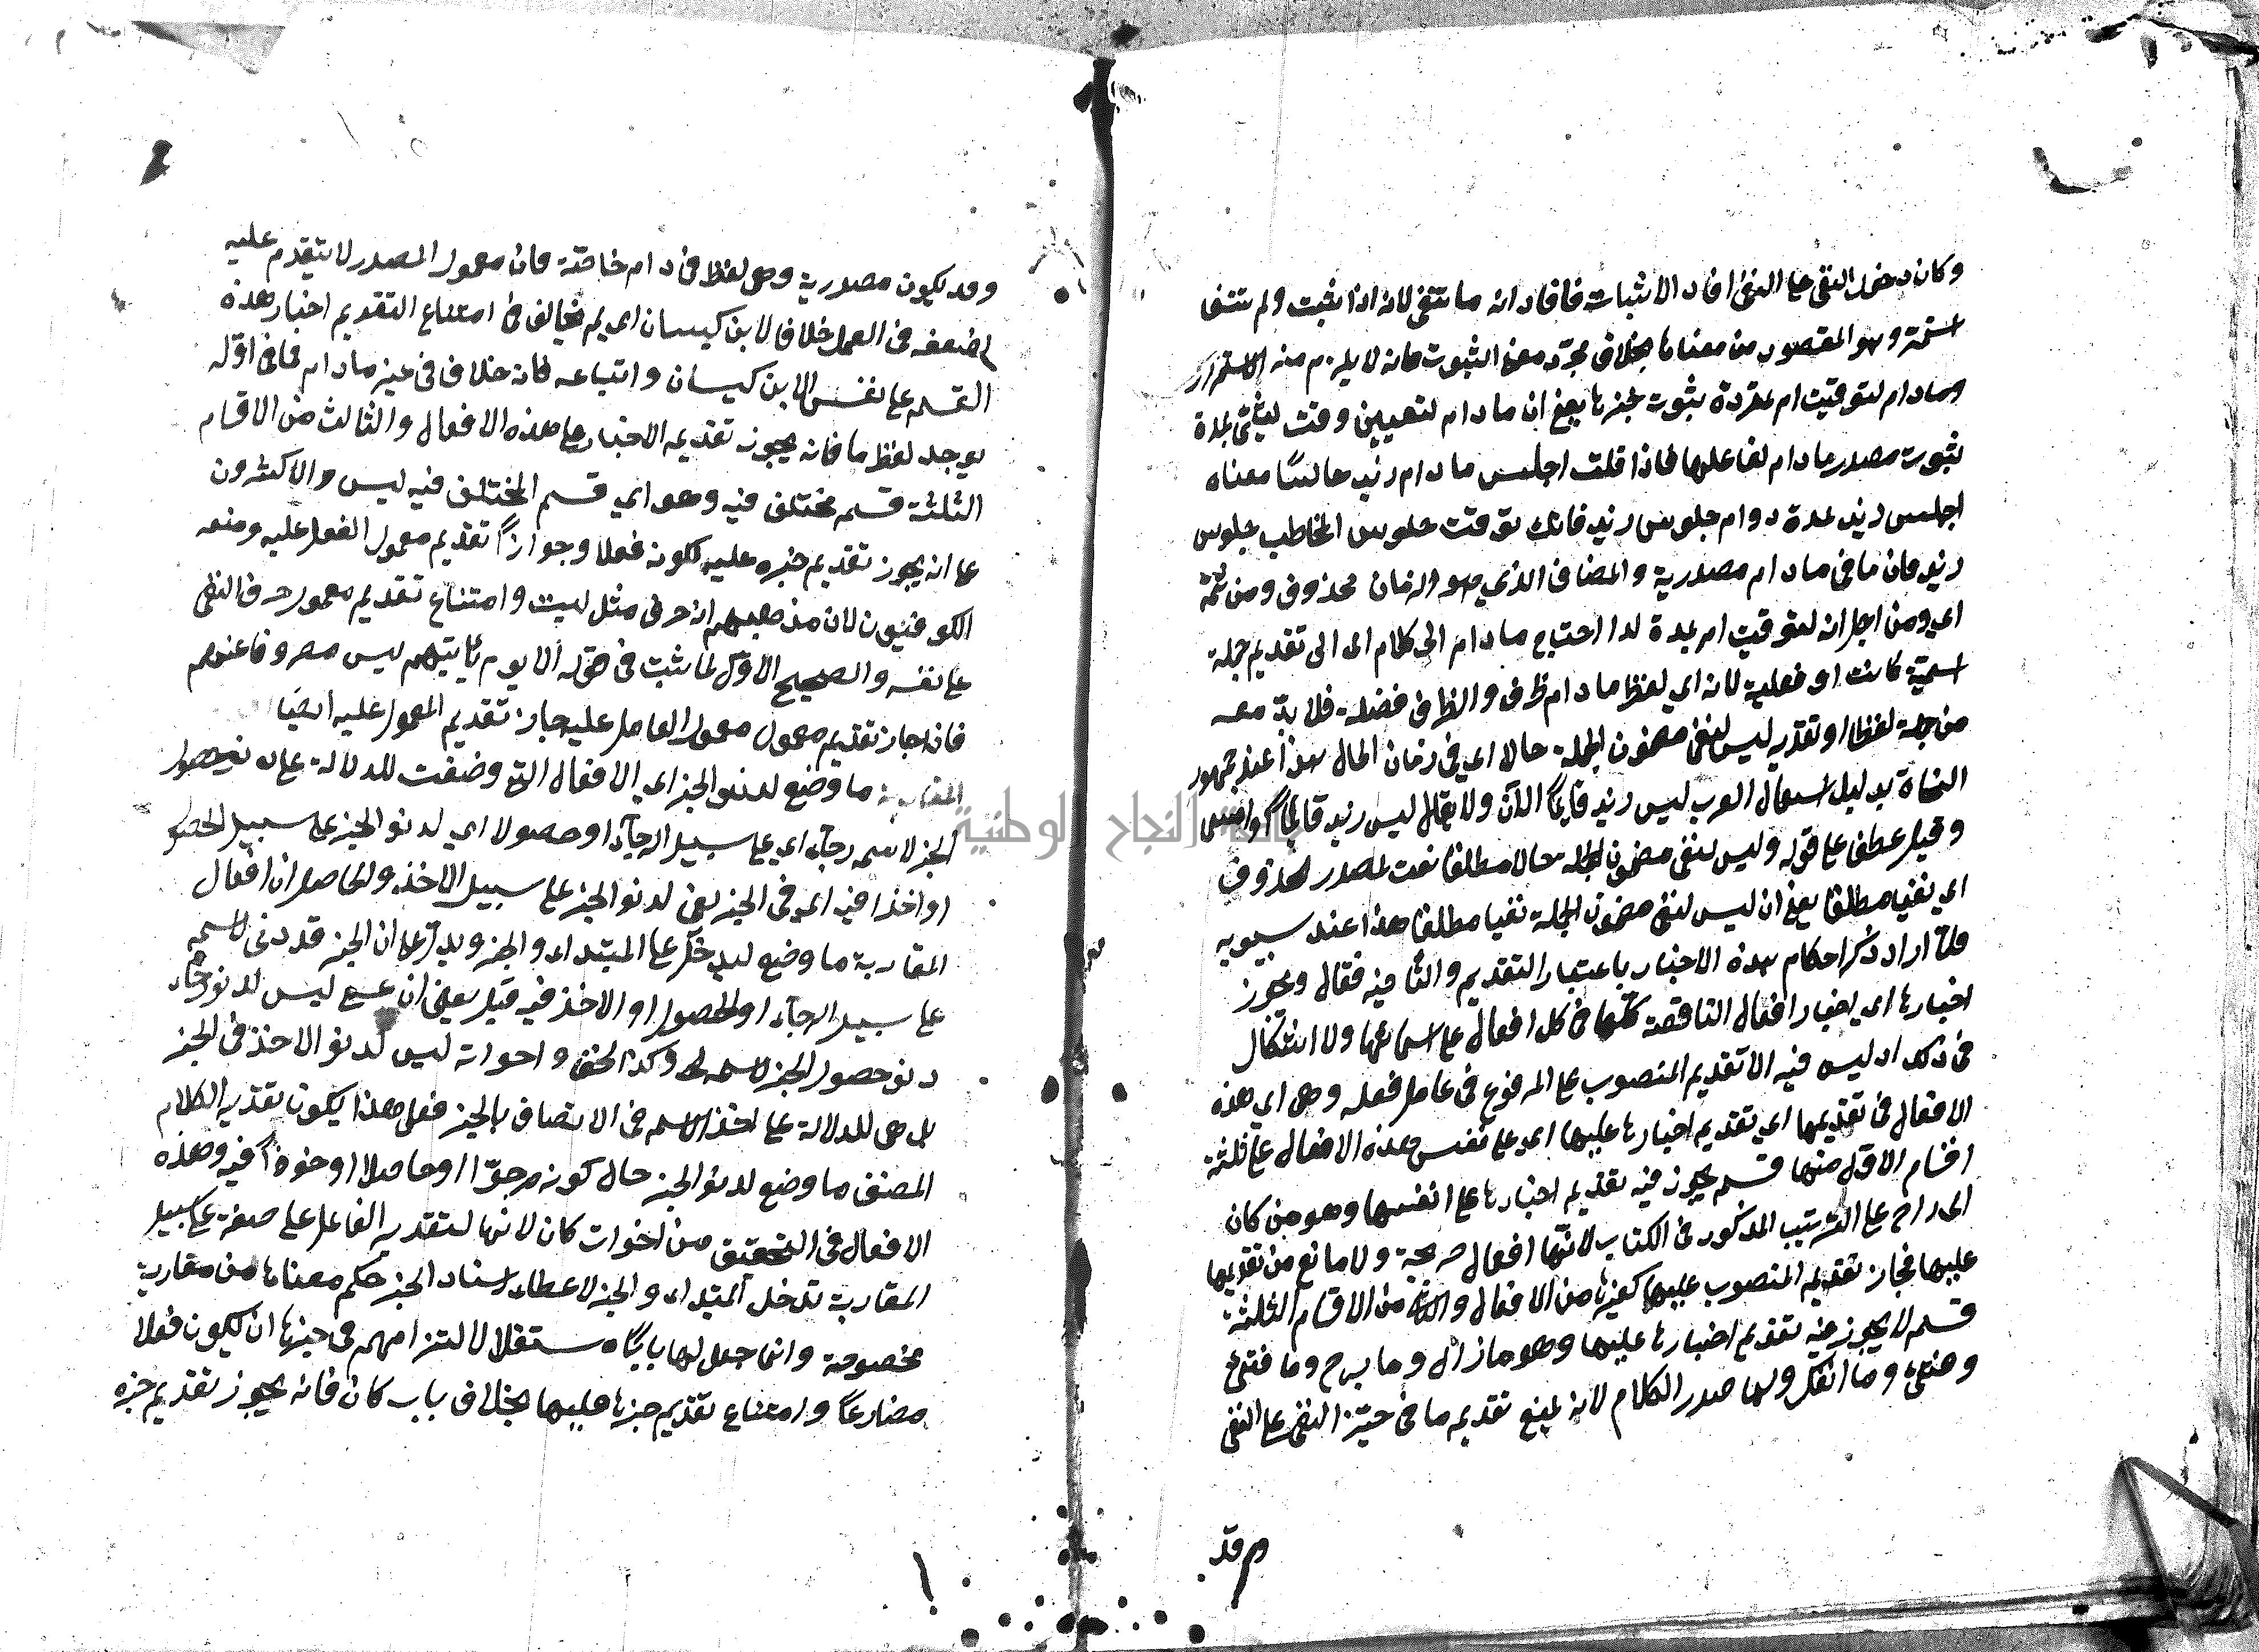 وكان دخول النفي على النفي افاد الاثبات فافاد انه ما ينتفي لانه اذا يثبت ولم ينتف
استمر وهو المقصود من معناها بخلاف مجرّد معنى الثبوت فانه لا يلزم منه الاستمرار
ومادام لتوقيت امر بمدة ثبوت خبرها يعني ان مادام لتعيين وقت لشيء بمدة
ثبوت مصدر مادام لفاعلها فاذا قلت اجلس مادام زيد جالسًا معناه
اجلس زيد لمدة دوام جلوس زيد فانك توقت جلوس المخاطب بجلوس
زيد فان ما في مادام مصدرية والمضاف الذي هو الزمان محذوف ومن ثمّة
اي ومن اجل انه لتوقيت امر بمدة لدا احتاج مادام الى كلام اى الى تقديم جملة
اسميّة كانت او فعلية لانه اي لفظ مادام ظرف والظرف فضلة فلا بدّ معه
من جملة لفظا او تقديرا ليس لنفي مضمون الجملة حالا اي في زمان الحال هذا عند جمهور
النحاة بدليل استعمال العرب ليس زيد قايمًا الآن ولا يقال ليس زيد قايمًا امس
وقيل عطف على قوله وليس لنفي مضمون الجملة حالا مطلقا نعت لمصدر محذوف
اي نفيا مطلقا يعني ان ليس لنفي مضمون الجملة نفيا مطلقا هذا عند سيبويه
ولمّا اراد ذكر احكام هذه الاخبار باعتبار التقديم والتأ فيه فقال ويجوز
اخبارها اي اخبار افعال الناقصة كلّها في كل افعال على اسمائها ولا اشكال
في ذلك اذ ليس فيه الا تقديم المنصوب على المرفوع في عامل فعله وهى اي هذه
الافعال في تقديمها اي تقديم اخبارها عليها اي على نفس هذه الافعال على ثلثة
اقسام الاوّل منها قسم يجوز فيه تقديم اخبارها على انفسها وهو من كان
الى راح على الترتيب المذكور في الكتاب لانّها افعال صريحة ولا مانع من تقديمها
عليها فجاز تقديم المنصوب عليها كغيرها من الافعال والثاني من الاقسام الثلثة
قسم لا يجوز فيه تقديم اخبارها عليها وهو مازال وما برح وما فتئ
وما انفك ولها صدر الكلام لانه يمنع تقديم ما في حيّز النفي على النفي
وقد
وقد يكون مصدرية وهى لفظ في دام خاصّة فان معمول المصدر لا يتقدم عليه
لضعفه في العمل خلافا لابن كيسان اي لم يخالف في امتناع التقديم اخبار هذه
القسم على نفس الا ابن كيسان واتباعه فانه خلاف في غير مادام فما في اوّله
يوجد لفظ ما فانه يجوز تقديم الاخبار على هذه الافعال والثالث من الاقسام
الثلثة قسم مختلف فيه وهو اي قسم المختلف فيه ليس والاكثرون
على انه يجوز تقديم خبره عليه لكونه فعلا وجوازًا تقديم معمول الفعل عليه ومنعه
الكوفيّون لان مذهبهم انه حرف مثل ليت وامتناع تقديم معمول حرف النفي
على نفسه والصحيح الاوّل لما ثبت في قوله الا يوم يأتيهم ليس مصروفا عنهم
فاذا جاز تقديم معمول معمول العامل عليه جاز تقديم المعمول عليه ايضًا
المقاربة ما وضع لدنو الخبر اي الافعال التي وضعت للدلالة على دنو حصول
الخبر لاسمه رجآء اي على سبيل الرجآء او حصولا اي لدنو الخبر على سبيل الحصول
او اخذا فيه اي في الخبر يعني لدنو الخبر على سبيل الاخذ والحاصل ان افعال
المقاربة ما وضع ليدخل على المبتداء والخبر ويدلّ على ان الخبر قد دنى لاسمه
على سبيل الرجآء او الحصول او الاخذ فيه قيل يعني ان عسى ليس لدنو رجآء
دنو حصول الخبر لاسمه وكذا الخ واخواته ليس لدنو الاخذ في الخبر
بل هى للدلالة على اخذ الاسم في الاتصاف بالخبر فعلى هذا يكون تقدير الكلام
المصنف ما وضع لدنو الخبر حال كونه مرجوّا او حاصلا او مأخوذًا فيه وهذه
الافعال في التحقيق من اخوات كان لانها لتقدير الفاعل على صفة على سبيل
المقاربة تدخل المبتداء والخبر لاعطاء اسناد الخبر حكم معناها من مقاربة
مخصوصة وانما جعل لها بابًا مستقلا لالتزامهم في خبرها ان يكون فعلا
مضارعًا وامتناع تقديم خبرها عليها بخلاف باب كان فانه يجوز تقديم خبره
جامعة النجاح الوطنية